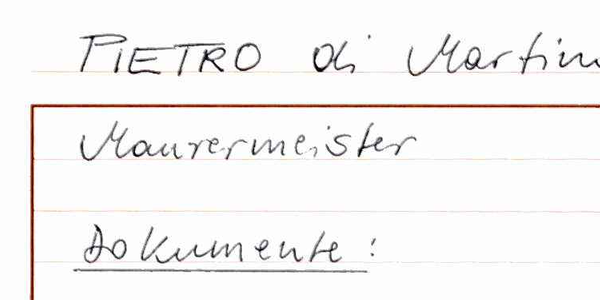 PIETRO di Martin
Maurermeister
Dokumente: